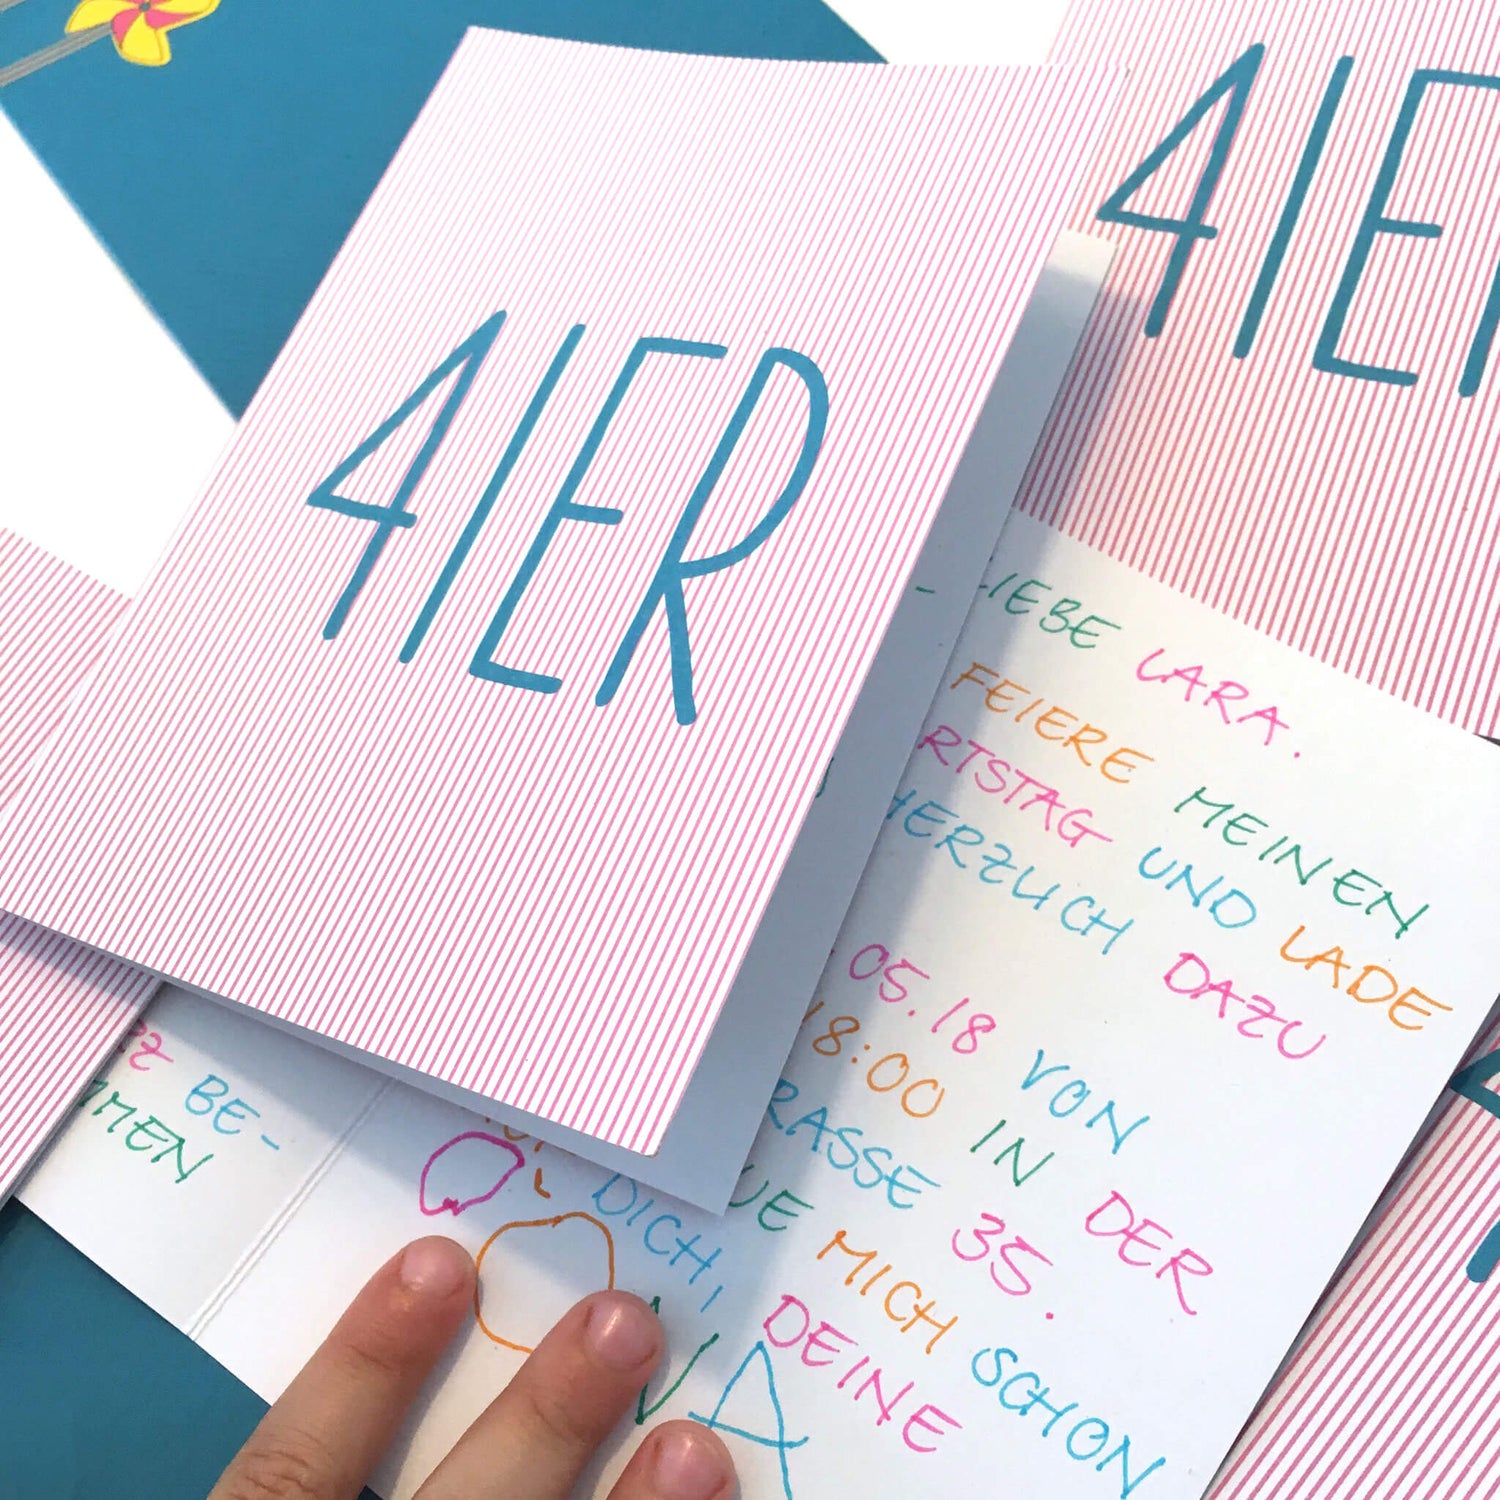 4IER
4IE
LIEBE LARA.
FEIERE MEINEN
RTSTAG UND LADE
HERZLICH DAZU
05.18 VON
18:00 IN DER
RASSE 35.
UE MICH SCHON
DICH,
DEINE
NA
Z BE-
MEN